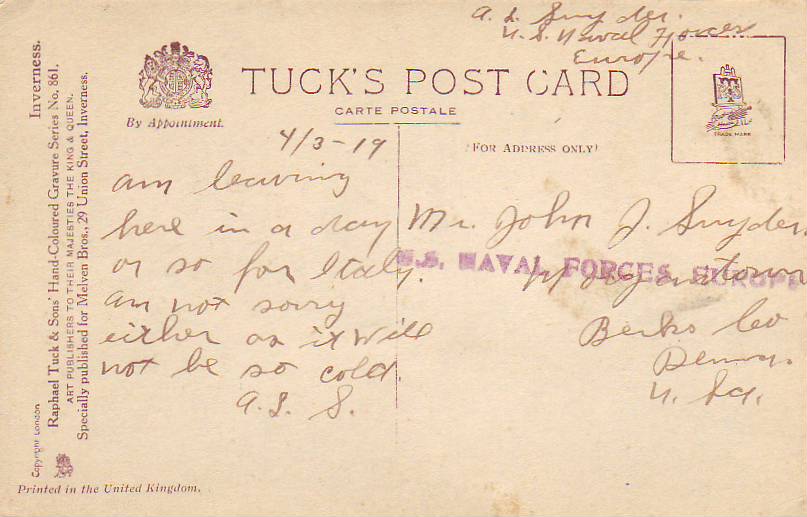 A. L. Snyder.
U. S. Naval Forces
Europe.
TUCK'S POST CARD
CARTE POSTALE
By Appointment.
(FOR ADDRESS ONLY)
TRADE MARK
4/3-19
am leaving
here in a day
or so for Italy.
am not sorry
either as it will
not be so cold.
A. L. S.
Mr. John J. Snyder.
U.S. NAVAL FORCES EUROPE
Morgantown
Berks Co
Penna.
U. S. A.
Inverness.
Raphael Tuck & Sons' Hand-Coloured Gravure Series No. 861.
ART PUBLISHERS TO THEIR MAJESTIES THE KING & QUEEN.
Specially published for Melven Bros., 29 Union Street, Inverness.
Copyright London
Printed in the United Kingdom.